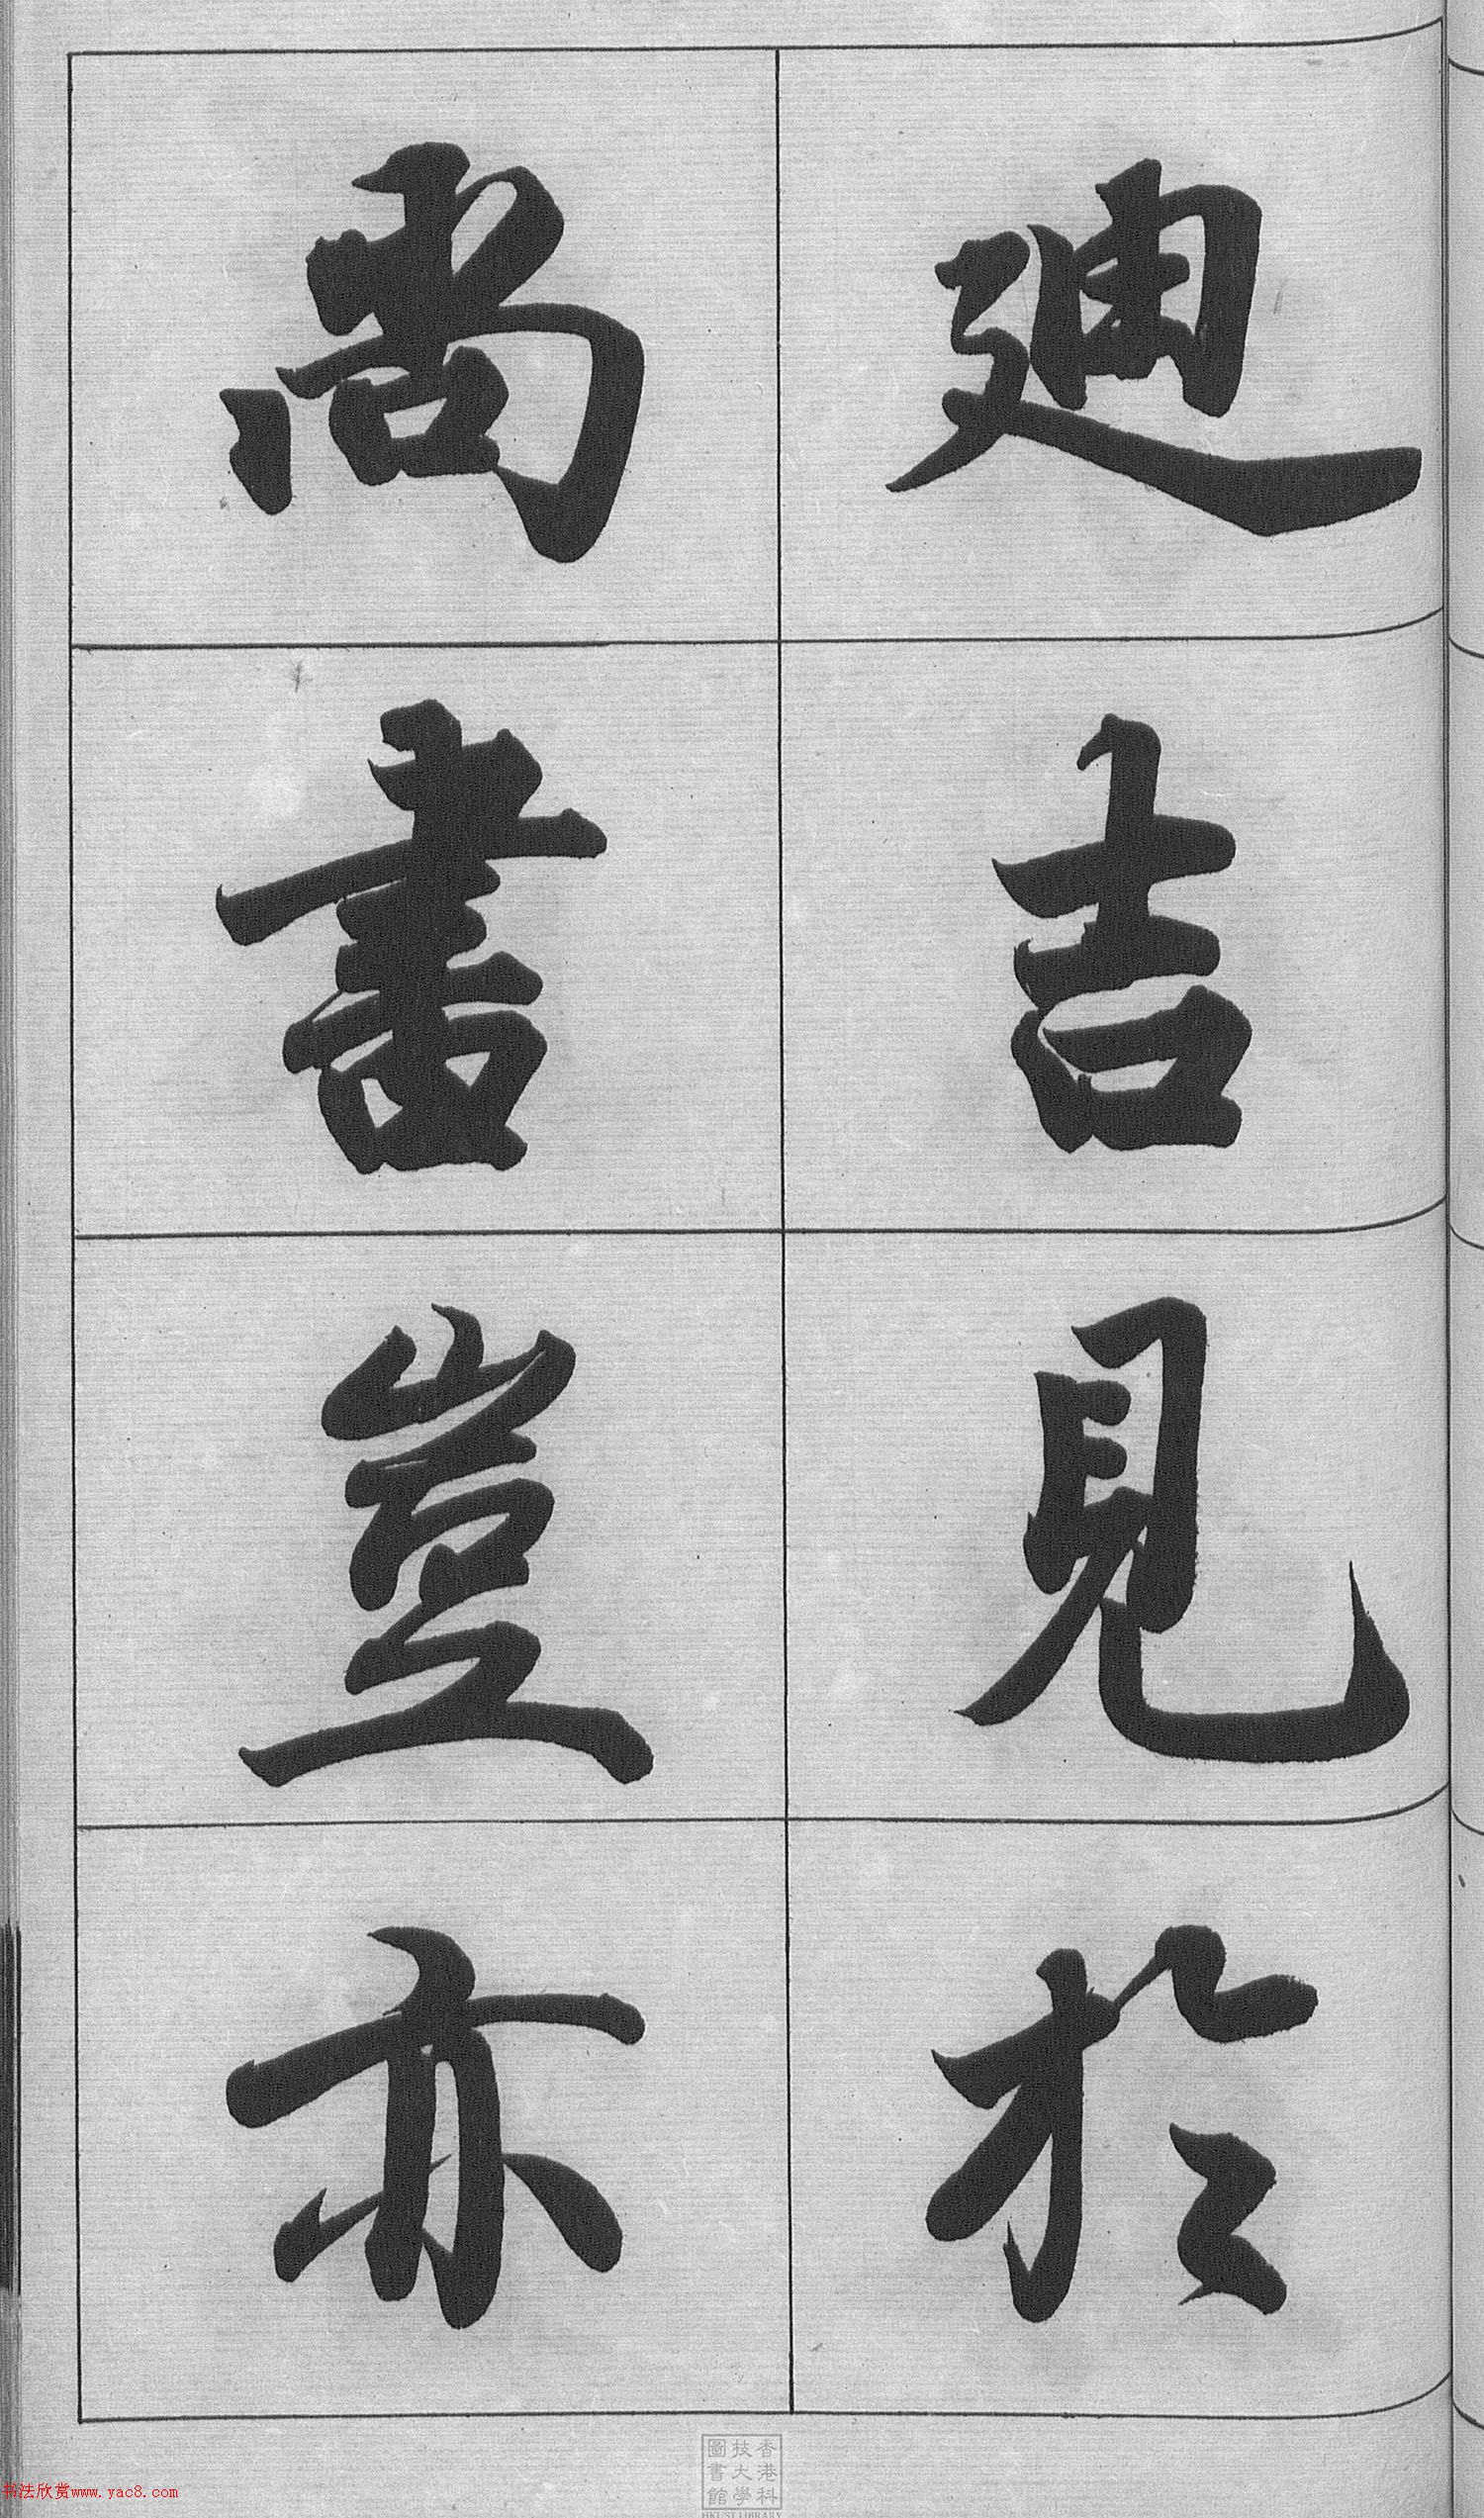 迪吉見於
尚書豈亦
香港科
技大學
圖書館
HKUST LIBRARY
书法欣赏www.yac8.com